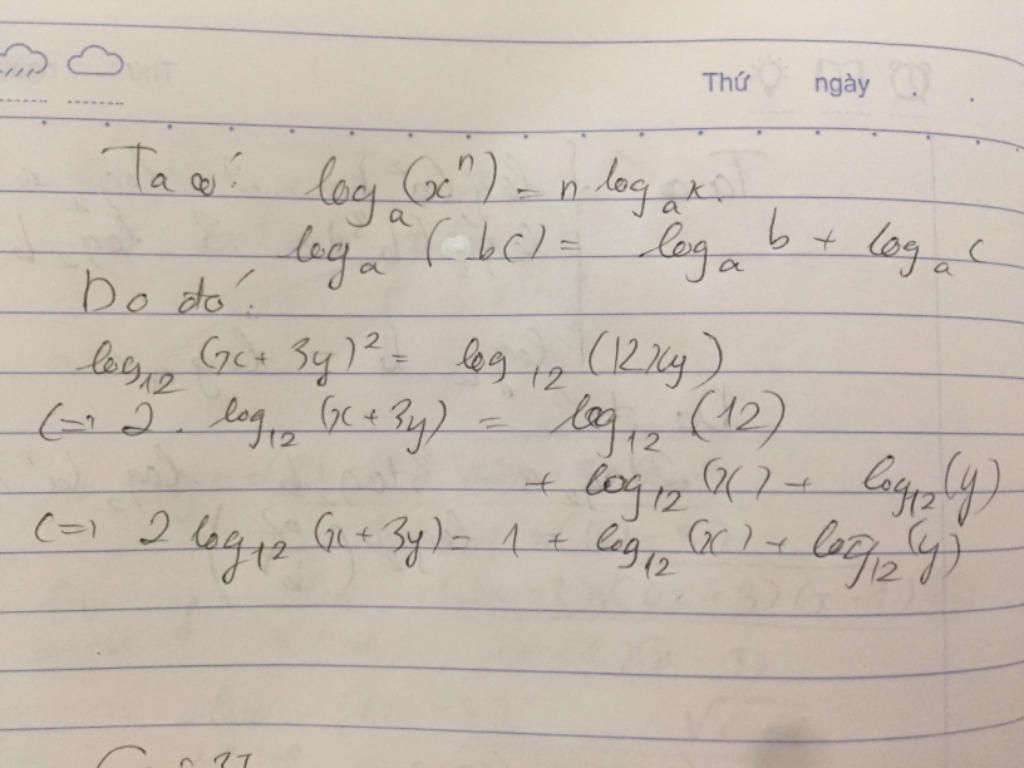 Thứ ngày
Ta có: logₐ(xⁿ) = n logₐx.
logₐ(bc) = logₐ b + logₐ c
Do đó:
log₁₂ (x + 3y)² = log ₁₂ (12xy)
(=) 2 . log₁₂ (x + 3y) = log₁₂ (12)
+ log₁₂ (x) + log₁₂ (y)
(=) 2 log₁₂ (x + 3y) = 1 + log₁₂ (x) + log₁₂ (y)